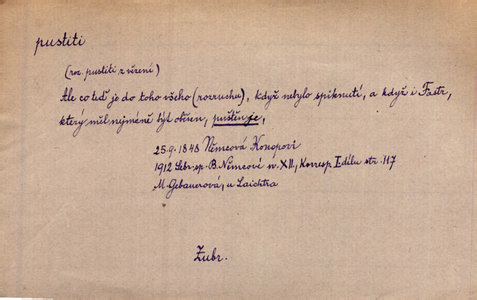 pustiti
(roz. pustiti z vězení)
Ale co teď je do toho všeho (rozruchu), když nebylo spiknutí, a když i Fastr,
který měl nejméně být oběšen, puštěn je,
25-9-1848 Němcová Konopovi
1912 Sebr. sp. B. Němcové sv. XII, Korresp. I. dílu str. 117
M. Gebauerová, u Laichtra
Zubr.